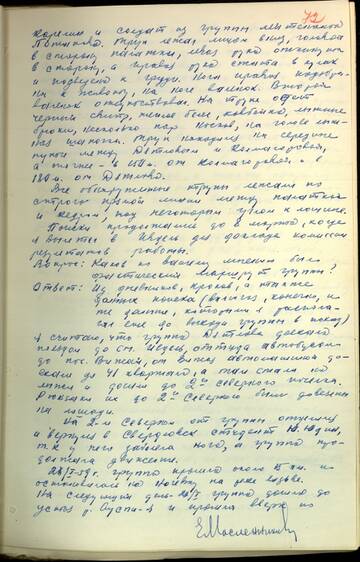 72
корелин и солдат из группы лейтенанта
Потапова. Труп лежал лицом вниз, головой
в сторону палатки, левая рука откинута
в сторону, а правая рука сжата в кулак
и подведена к груди. Нога правая подобра-
на к животу, на ноге валенок. Второй
валенок отсутствовал. На трупе одет
черный свитр, теплое белье, ковбойка, лыжные
брюки, несколько пар носков, на голове лыж-
ная шапочка. Труп находился на середине
пути между Дятловым и Колмогоровой,
а точнее - в 150 м. от Колмогоровой и в
180 м. от Дятлова.
Все обнаруженные трупы лежали по
строго прямой линии между палаткой
и кедром, под некоторым углом к лощине.
Поиски продолжались до 8 марта, когда
я вылетел в Ивдель для доклада комиссии
результатов работы.
Вопрос: Каков по вашему мнению был
фактический маршрут группы?
Ответ: Из дневников, кроков, а также
данных поиска
данные, которыми я распола-
гал еще до выезда группы в поход)
я считаю, что группа Дятлова доехала
поездом до ст. Ивдель, оттуда автобусом
до пос. Вижай, от Вижая автомашиной до-
ехали до 41 квартала, а там стали на
лыжи и дошли до 2го северного поселка.
Рюкзаки их до 2го Северного были довезены
на лошади.
На 2-м Северном от группы отделился
и вернулся в Свердловск студент Ю. Юдин,
т.к. у него заболела нога, а группа про-
должала движение.
28/I-59 г. группа прошла около 15 км. и
остановилась на ночевку на реке Лозьве.
На следующий день - 29/I группа дошла до
устья р. Ауспи-я и прошла вверх по
Е. Масленников